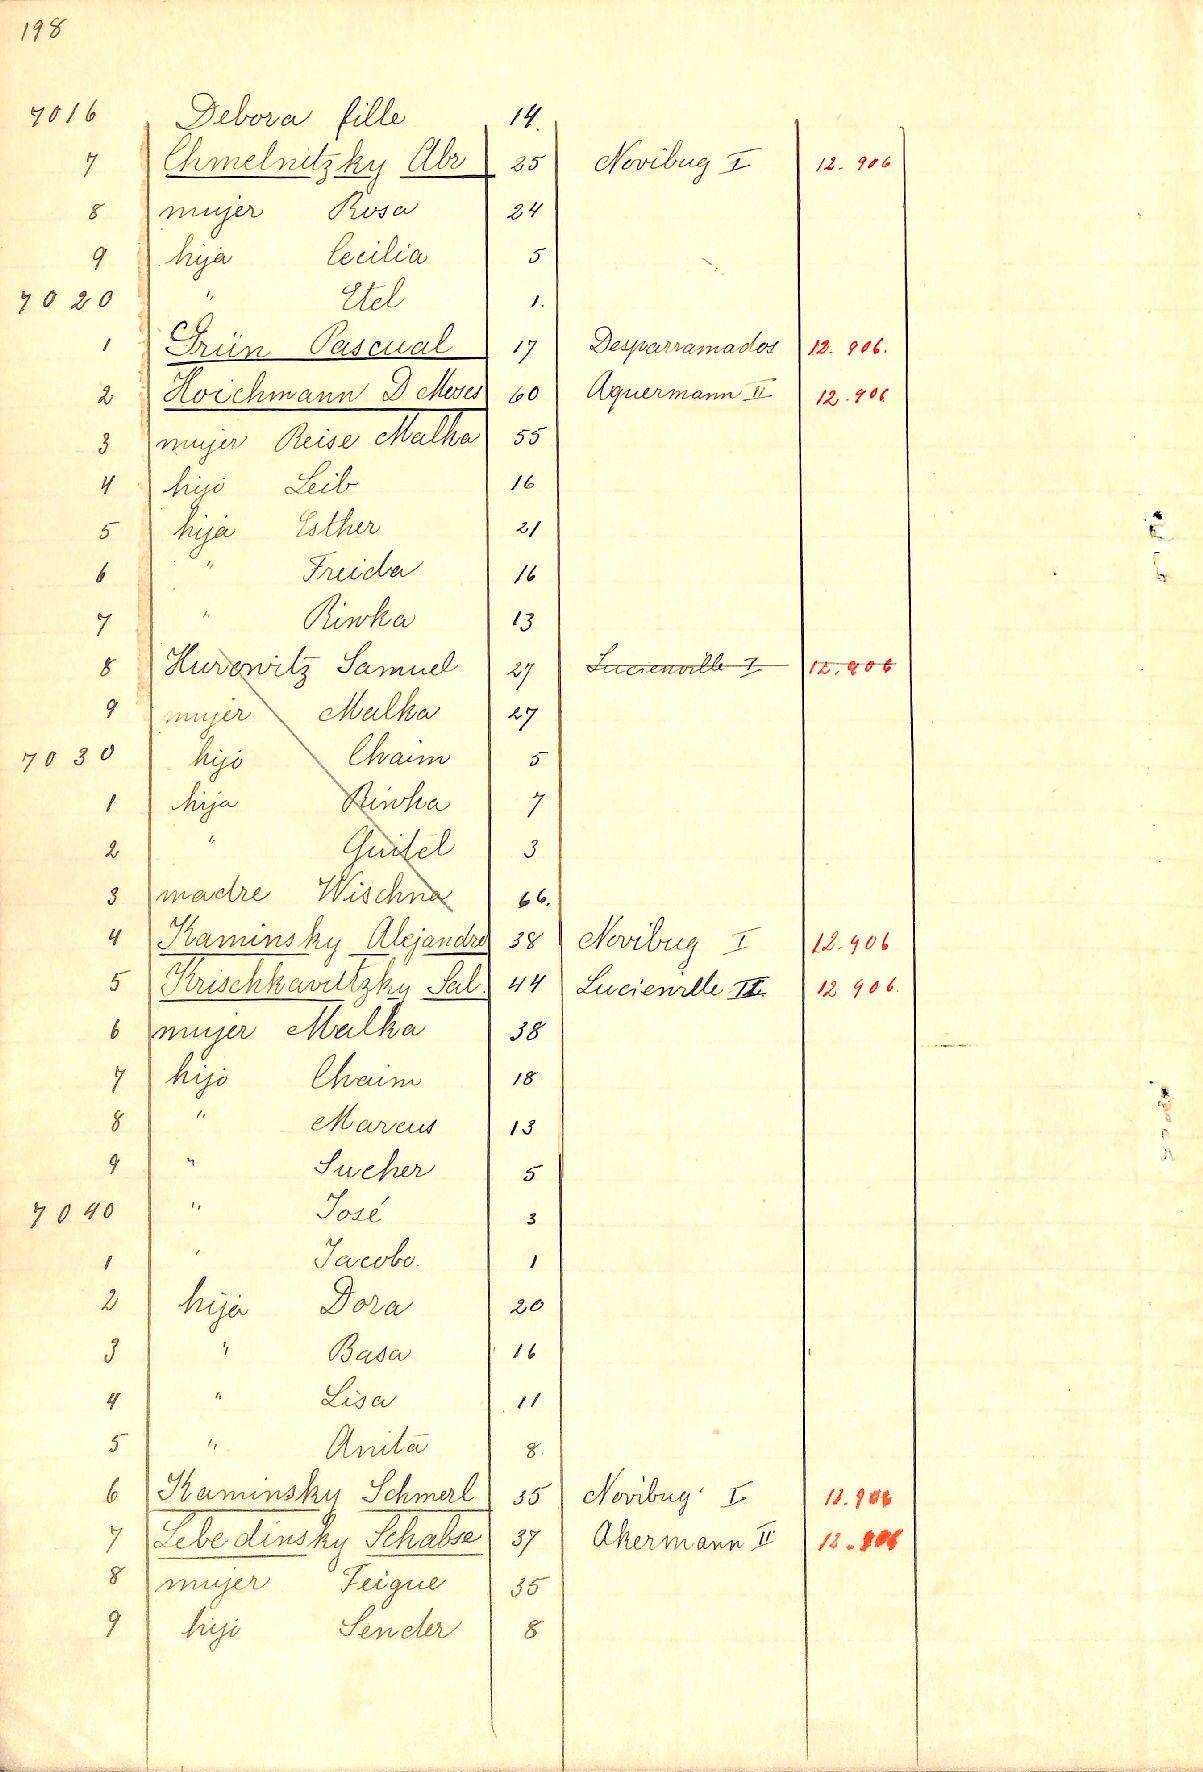 198
7016 Debora fille 14.
7 Chmelnitzky Abr 25 Novibug I 12.906
8 mujer Rosa 24
9 hija Cecilia 5
7020 " Etel 1.
1 Grün Pascual 17 Desparramados 12.906.
2 Hoichmann D Moses 60 Aquermann II 12.906
3 mujer Reise Malka 55
4 hijo Leib 16
5 hija Esther 21
6 " Freida 16
7 " Riwka 13
8 Hurowitz Samuel 27 Lucienville I 12.906
9 mujer Malka 27
7030 hijo Chaim 5
1 hija Riwka 7
2 " Guitel 3
3 madre Wischna 66.
4 Kaminsky Alejandro 38 Novibug I 12.906
5 Krischkavutzky Sal. 44 Lucienville II 12 906.
6 mujer Malka 38
7 hijo Chaim 18
8 " Marcus 13
9 " Sucher 5
7040 " José 3
1 " Jacobo. 1
2 hija Dora 20
3 " Basa 16
4 " Lisa 11
5 " Anita 8.
6 Kaminsky Schmerl 35 Novibug I 12.906
7 Lebedinsky Schabse 37 Akermann II 12.906
8 mujer Feigue 35
9 hijo Sender 8